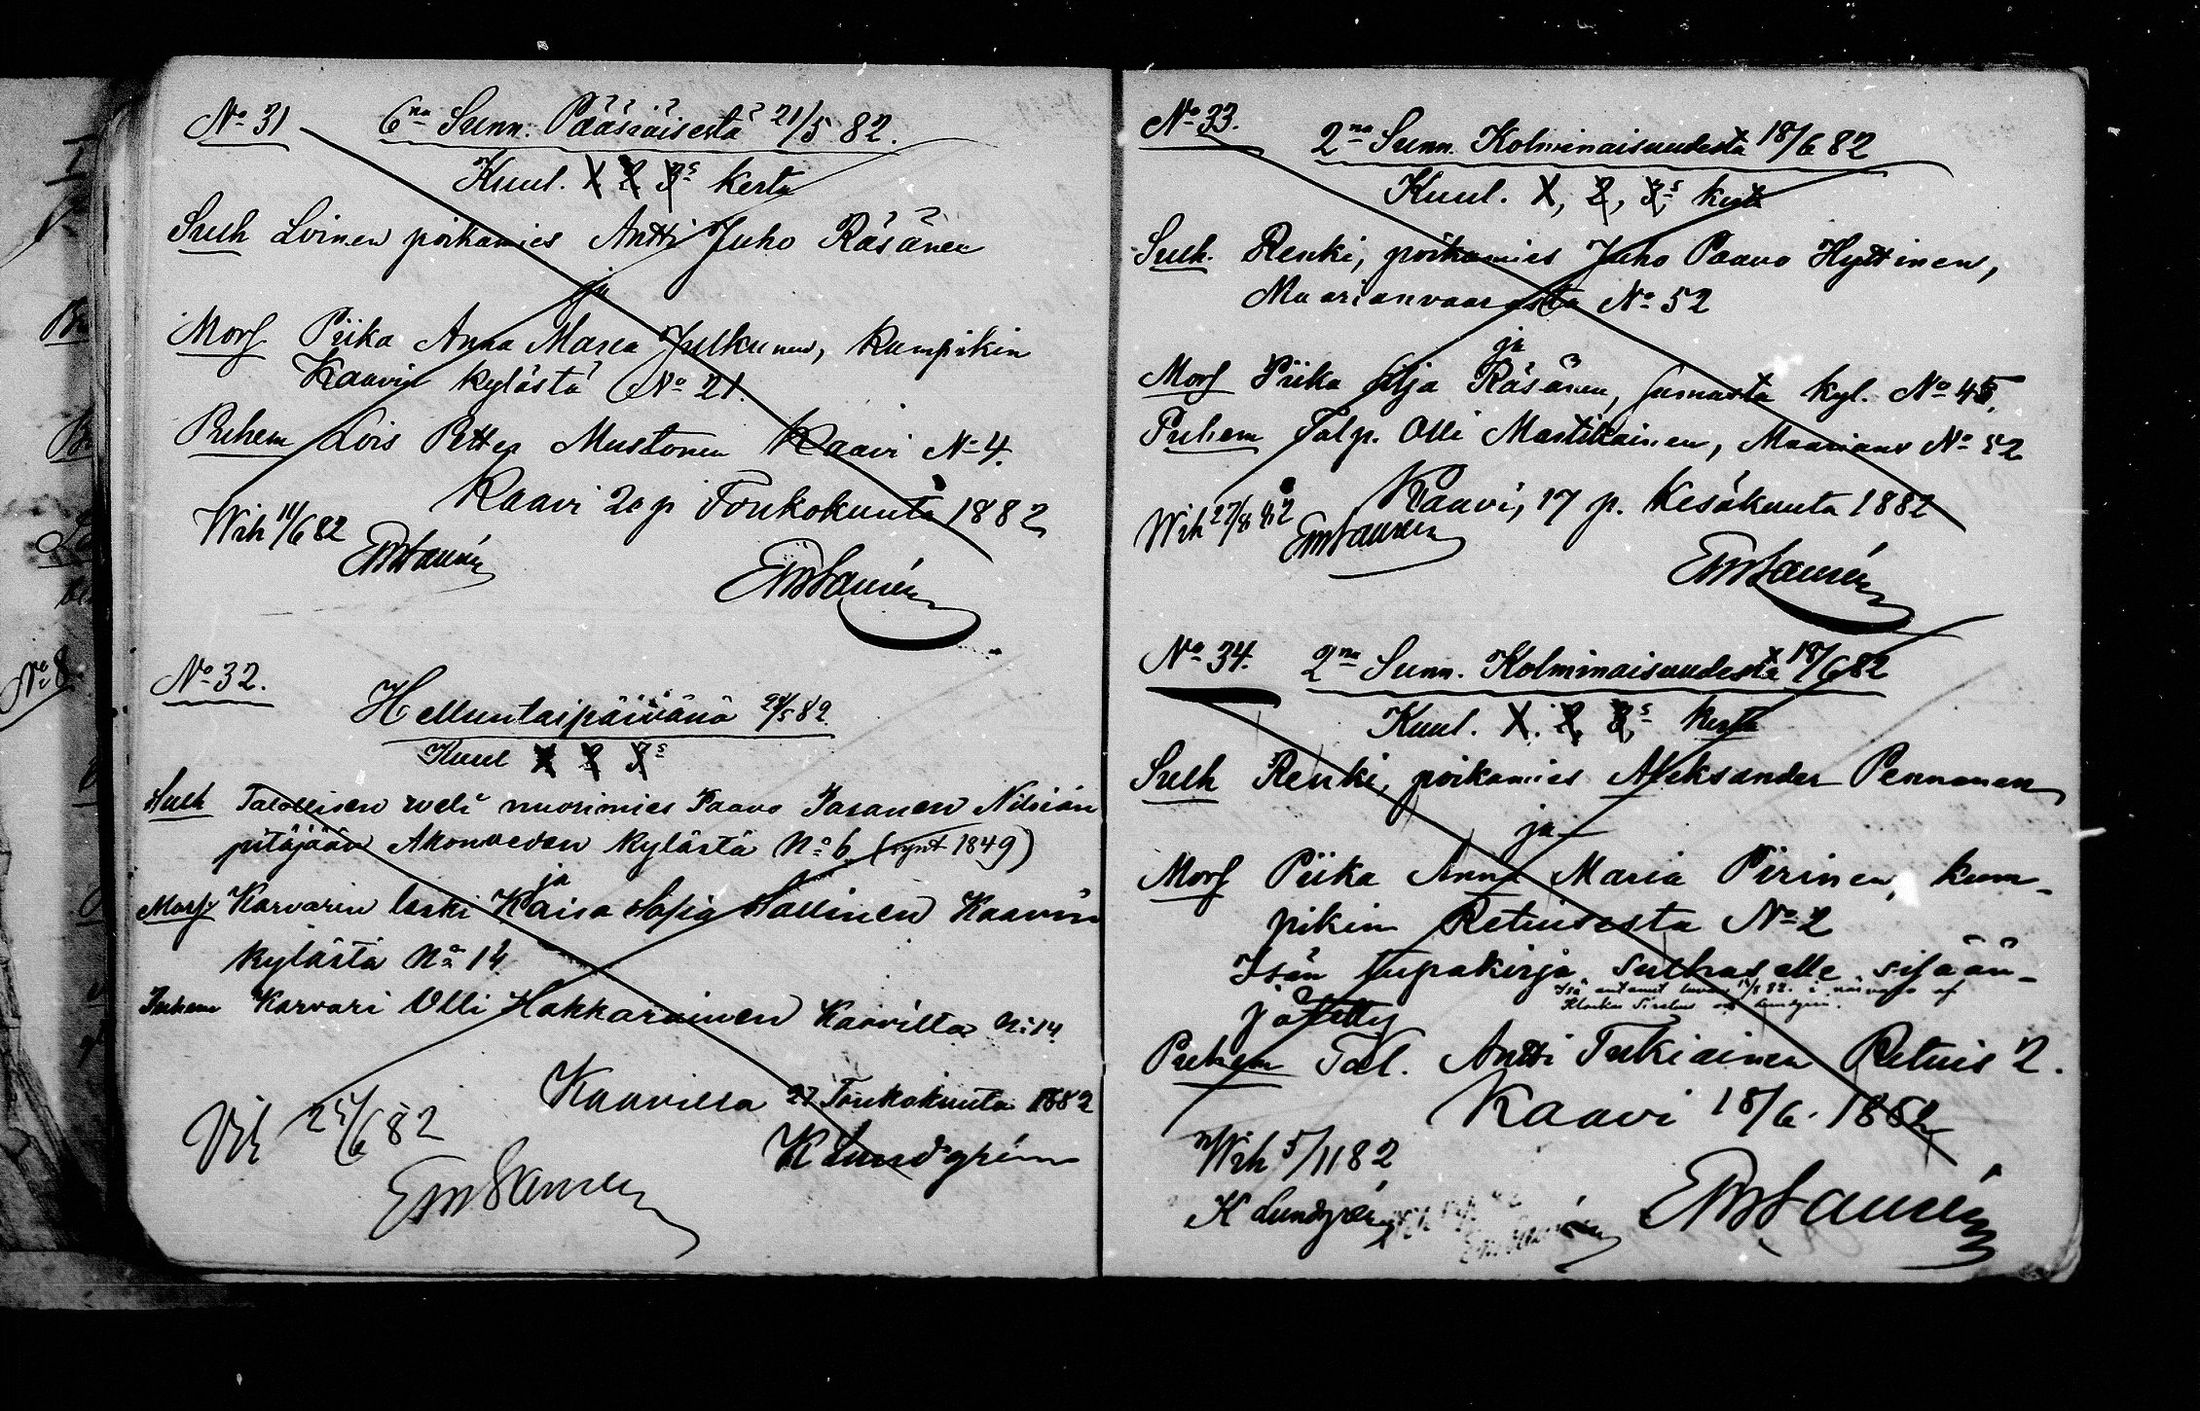 No 31 6na Sunn. Pääsiäisestä 21/5 82.
Kuul. 1 2 3s kerta
Sulh Loinen poikamies Antti Juho Räsänen
ja
Mors Piika Anna Maria Julkunen, kumpikin
Kaavin kylästä No 21.
Puhem Lois Petter Mustonen Kaavi No 4.
Kaavi 20 p Toukokuuta 1882
Wih 11/6 82
No 32.
Helluntaipäivänä 28/5 82.
Kuul 1 2 3s
Sulh Talollisen veli nuorimies Paavo Jasanen Nilsiän
pitäjään Akonveden kylästä No 6 (synt 1849)
ja
Mors Karvarin leski Kaisa Sofia Hallinen Kaavin
kylästä No 14
Puhem Karvari Olli Hakkarainen Kaavilta No 14
Kaavissa 27 Toukokuuta 1882
K Lundgrén
Vih 25/6 82
No 33.
2na Sunn. Kolminaisuudesta 18/6 82
Kuul. 1, 2, 3,s kerta
Sulh. Renki, poikamies Juho Paavo Hyttinen,
Maarianvaarasta No 52
ja
Mors Piika Räsänen, kyl. No 45,
Puhem Talp. Olli Martikainen, Maarianv No 52
Kaavi, 17 p. Kesäkuuta 1882
Wih 27/8 82
No 34. 2na Sunn. Kolminaisuudesta 18/6 82
Kuul. 1. 2, 3,s kerta
Sulh Renki, poikamies Aleksander Pennanen
ja
Mors Piika Anna Maria Pirinen, kum-
pikin Retuisesta No 2
Isän lupakirja Sulhaselle sisään-
Isä antanut luvan
jätetty
Puhem Tal. Antti Tukiainen Retuis 2.
Kaavi 18/6. 1882
Wih 5/11 82
K Lundgrén